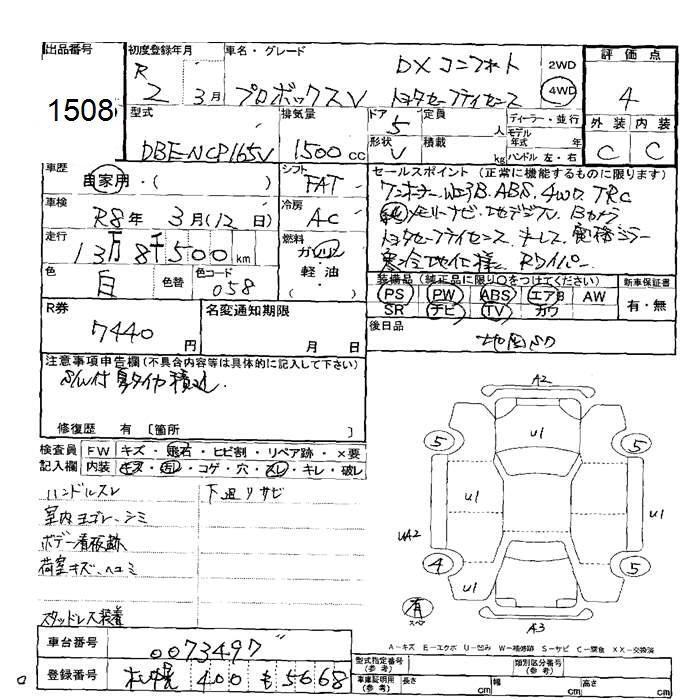 出品番号
1508
初度登録年月
R 2 3月
車名・グレード
プロボックスV
DX コンフォート
トヨタセーフティセンス
2WD
4WD
評価点
4
外装 内装
C C
型式
DBE-NCP165V
排気量
1500 cc
ドア
5
形状
V
定員
人
積載
kg
ディーラー・並行
モデル年式 年
ハンドル 左・右
車歴
自家用・( )
シフト
FAT
車検
R8年 3月(12日)
冷房
AC
走行
13万8千500km
燃料
ガソリン
軽油
( )
色
白
色替
色コード
058
セールスポイント (正常に機能するものに限ります)
ワンオーナー WエアB. ABS. 4WD. TRC
純メモリーナビ. 地デジTV. Bカメラ
トヨタセーフティセンス. キーレス. 電格ミラー
寒冷地仕様. Rワイパー.
装備品 (純正品に限り○をつけてください)
PS PW ABS エアB AW
SR ナビ TV カワ
新車保証書
有・無
R券
7440円
名変通知期限
月 日
後日品
地図SD
注意事項申告欄(不具合内容等は具体的に記入して下さい)
S/W付 夏タイヤ積込.
修復歴 有 [箇所 ]
検査員記入欄
FW キズ・飛石・ヒビ割・リペア跡・×要
内装 キズ・汚レ・コゲ・穴・スレ・キレ・破レ
ハンドルスレ
下廻リサビ
室内ヨゴレ、シミ
ボデー看板跡
荷室キズ、ヘコミ
スタッドレス装着
A2
U1
5 5
U1 U1
UA2
4 5
U1
有
スペア
A3
A－キズ E－エクボ U－凹み W－補修跡 S－サビ C－腐食 XX－交換済
車台番号
0073497
登録番号
札幌 400 も 5668
型式指定番号
(参考)
類別区分番号
(参考)
車庫証明用
(参考)
長さ cm
幅 cm
高さ cm